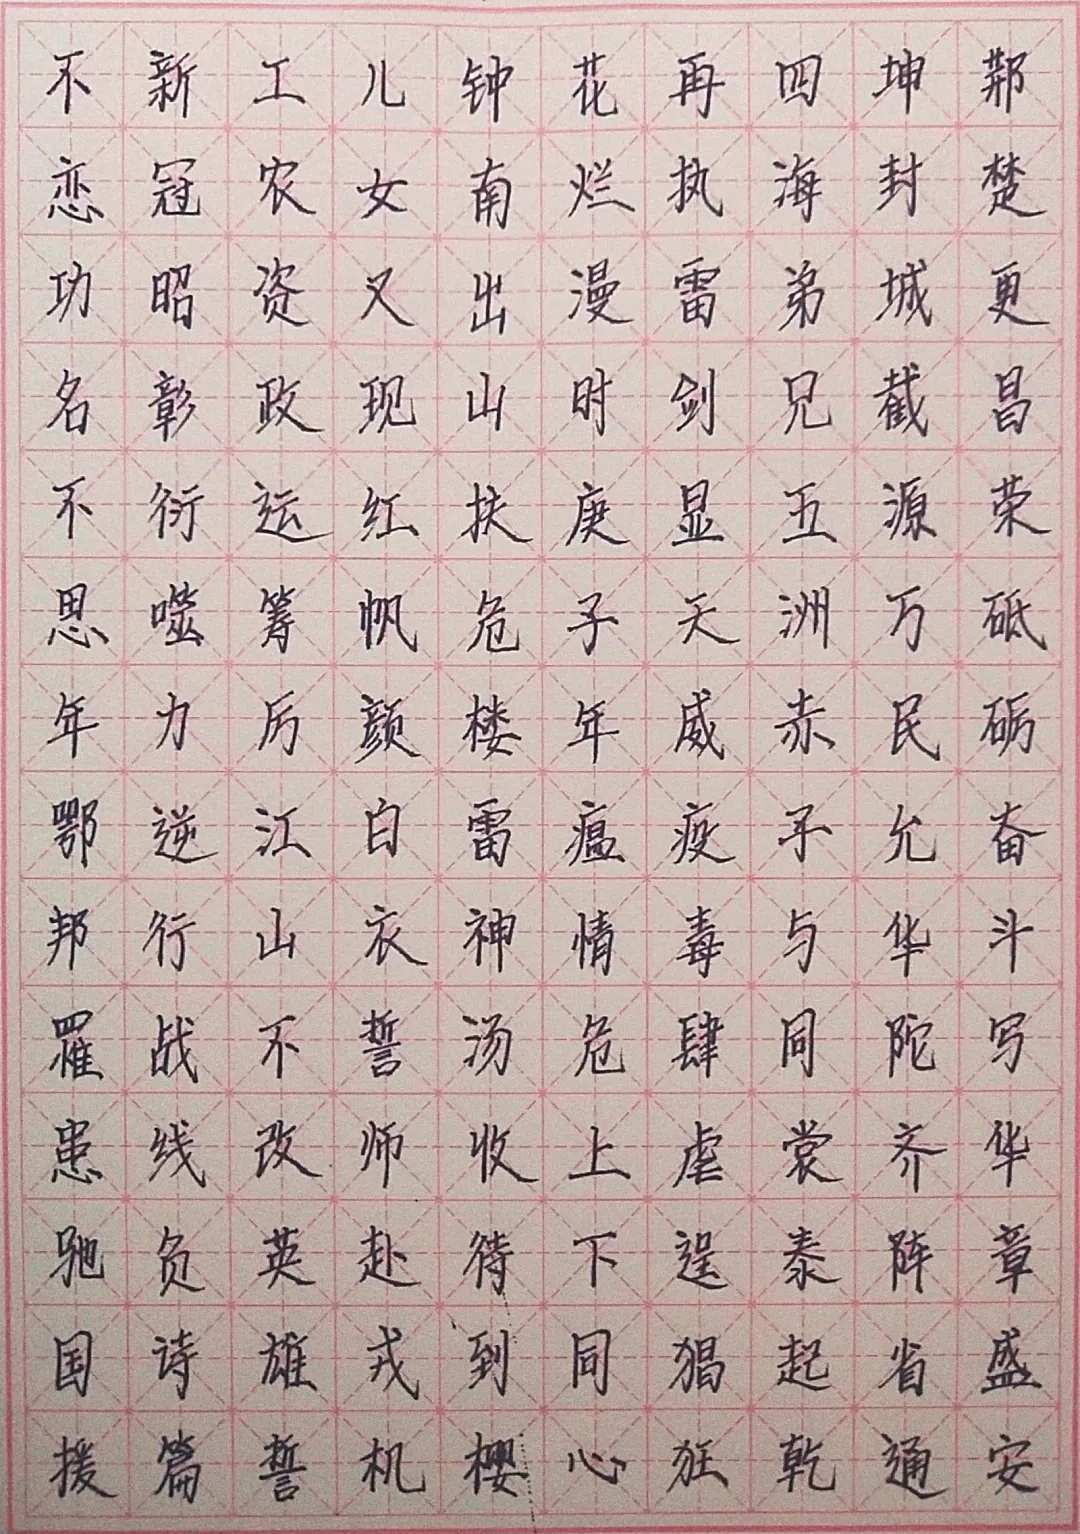 不恋功名不思年鄂邦罹患驰国援
新冠昭彰衍噬力逆行战线负诗篇
工农资政运筹厉江山不改英雄誓
儿女又现红帆颜白衣誓师赴戎机
钟南出山扶危楼雷神汤收待到樱
花烂漫时庚子年瘟情危上下同心
再执雷剑显天威疫毒肆虐逞猖狂
四海弟兄五洲赤子与同裳泰起乾
坤封城截源万民允华陀齐阵省通
荆楚更昌荣砥砺奋斗写华章盛安